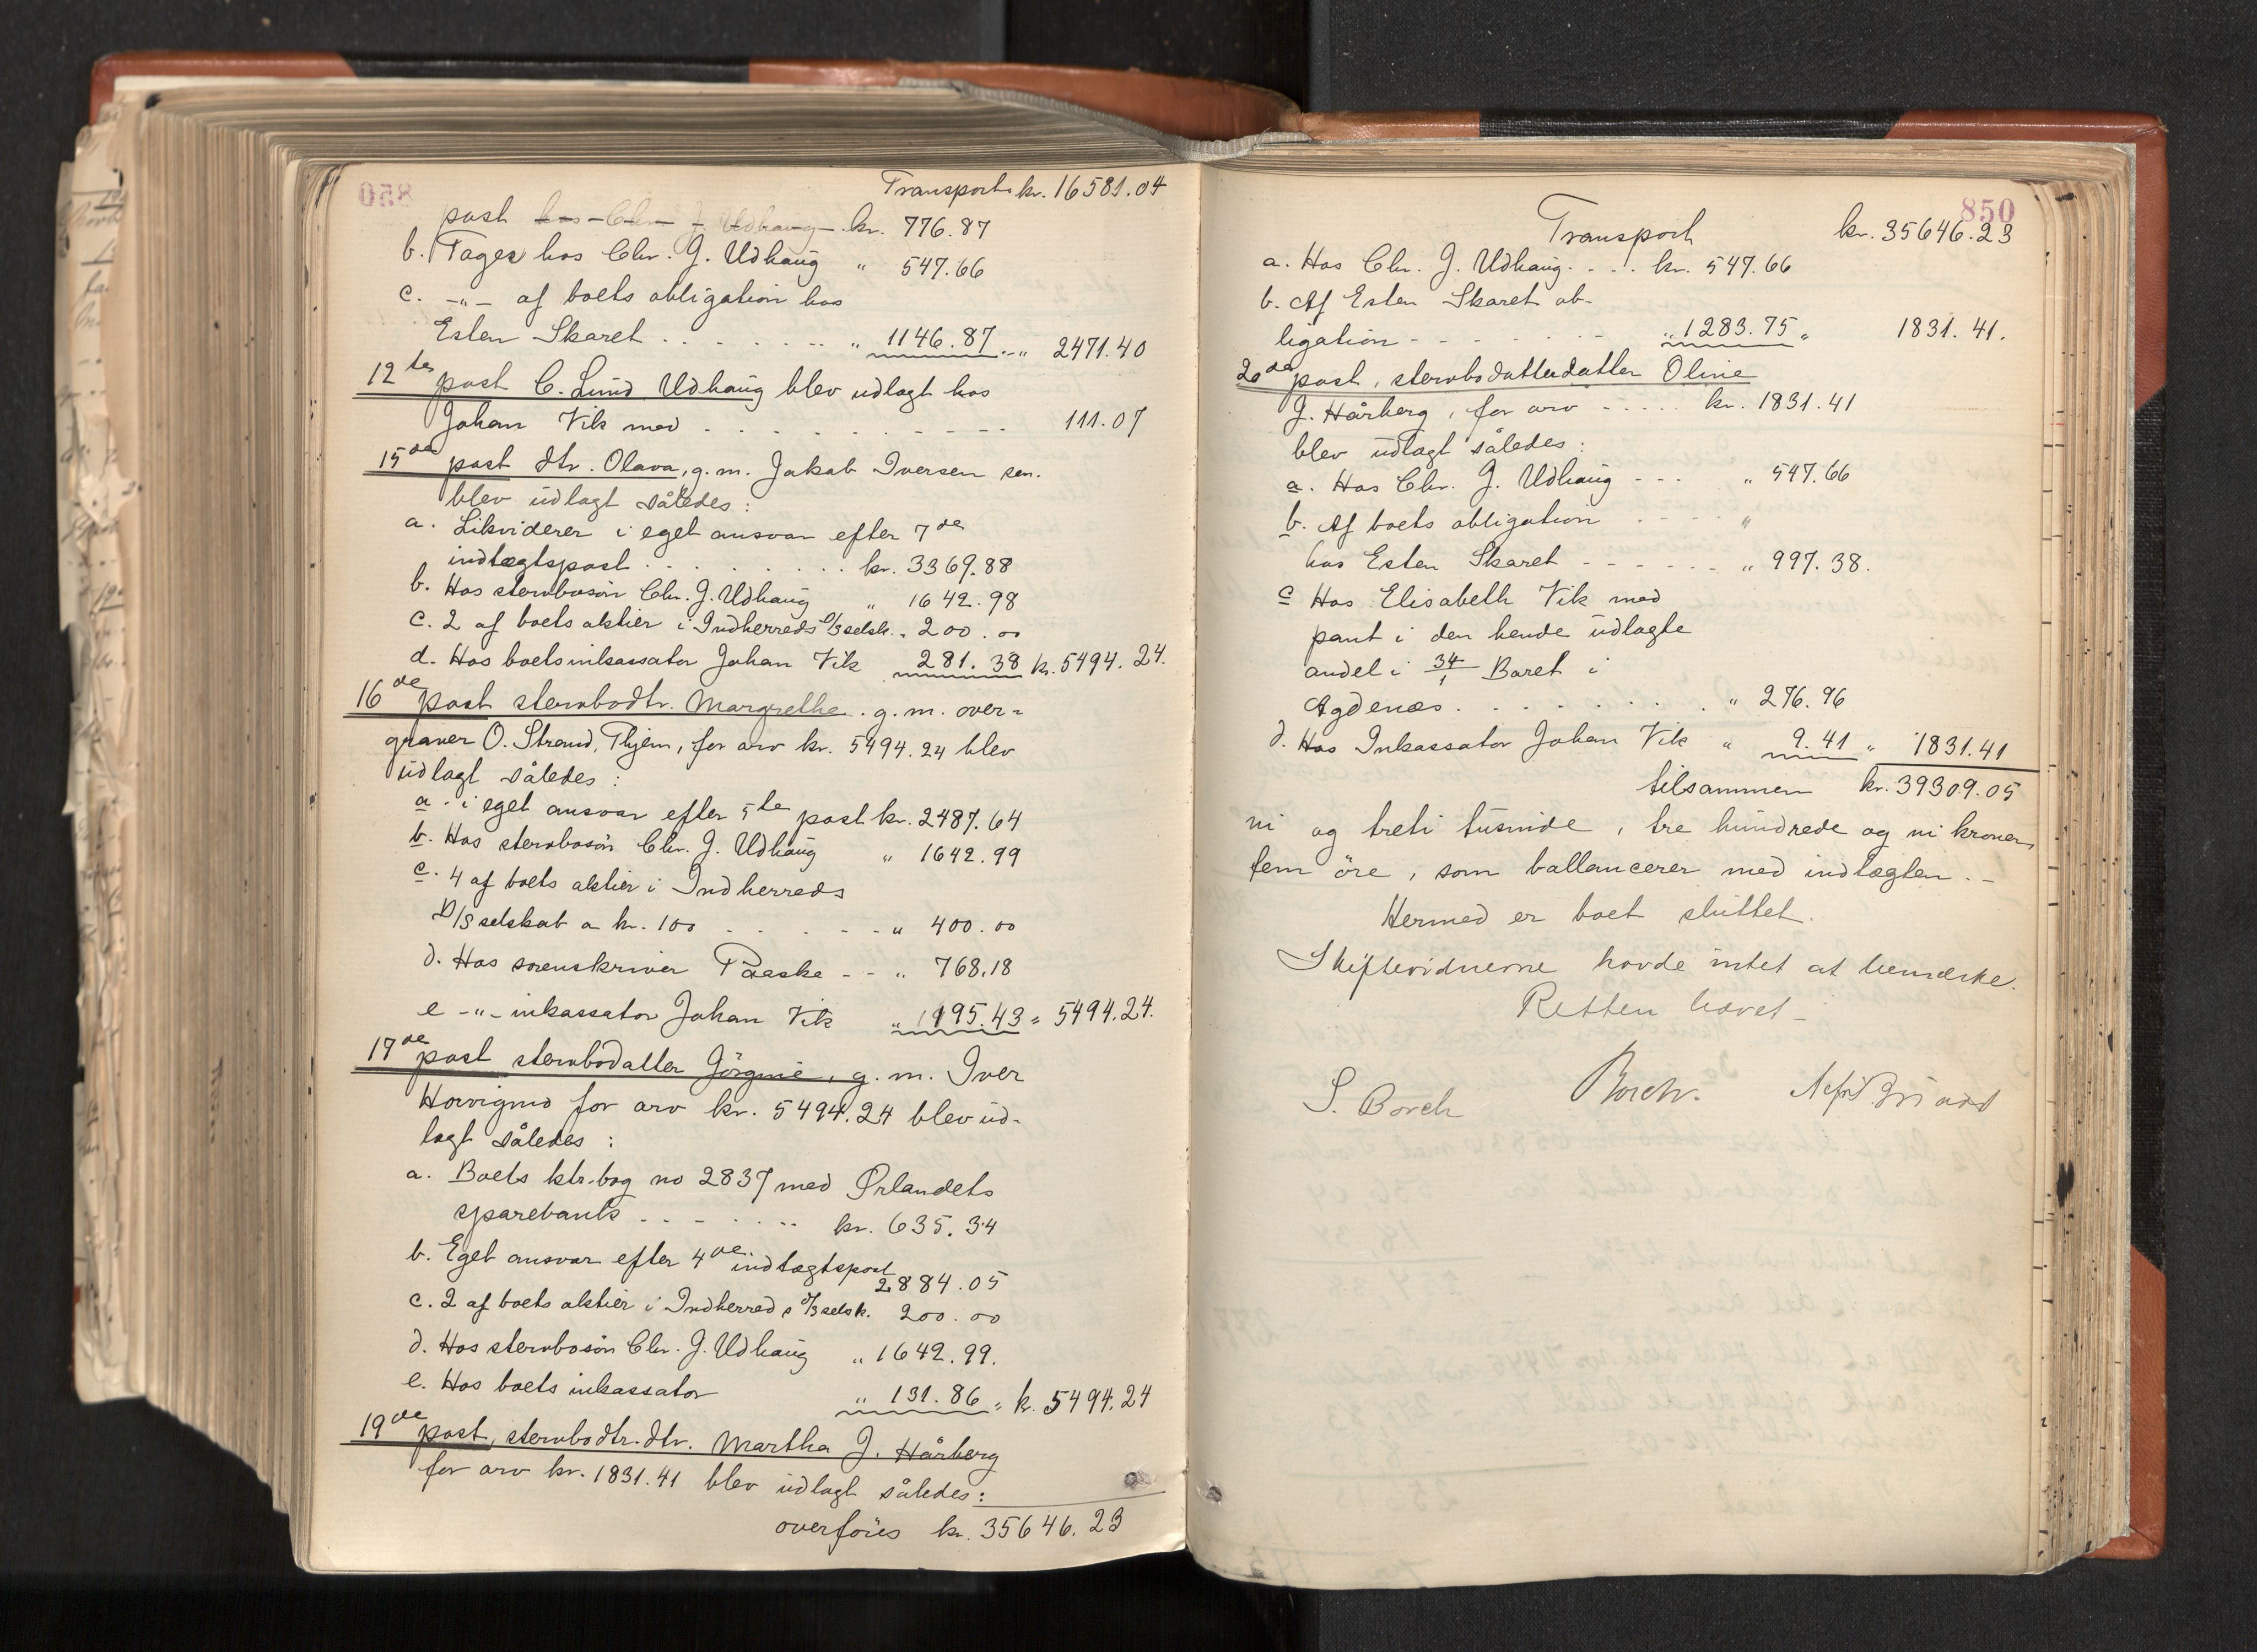 Transport kr. 16581.04
post hos Chr. J. Udhaug kr. 776.87
b. Tages hos Chr. J. Udhaug " 547.66
c. -"- af boets obligation hos
Esten Skaret . . . . . . " 1146.87 " 2471.40
12te post C. Lund Udhaug blev udlagt hos
Johan Vik med . . . . . . . . . 111.07
15de post dtr. Olava, g.m. Jakob Iversen sen.
blev udlagt således:
a. Likviderer i eget ansvar efter 7de
indtægtspost . . . . . . kr. 3369.88
b. Hos stervbosön Chr. J. Udhaug " 1642.98
c. 2 af boets aktier i Indherreds D/S selsk. " 200.00
d. Hos boets inkassator Johan Vik 281.38 kr. 5494.24.
16de post stervbodtr. Margrethe. g.m. over-
graver O. Strand, Thjem, for arv kr. 5494.24 blev
udlagt således:
a. i eget ansvar efter 5te post kr. 2487.64
b. Hos stervbosön Chr. J. Udhaug " 1642.99
c. 4 af boets aktier i Indherreds
D/S selskab a kr. 100 . . . . - - " 400.00
d. Hos sorenskriver Paaske - - " 768.18
e -"- inkassator Johan Vik " 195.43 " 5494.24.
17de post stervbodatter Jörgine, g.m. Iver
for arv kr. 5494.24 blev ud-
lagt således:
a. Boets ktr.bog no 2837 med Ørlandets
sparebank . . . . . . kr. 635.34
b. Eget ansvar efter 4de indtægtspost
2884.05
c. 2 af boets aktier i Indherreds D/S selsk. 200.00
d. Hos stervbosön Chr. J. Udhaug " 1642.99.
e. Hos boets inkassator " 131.86 " kr. 5494.24
19de post, stervbodtr.dtr. Martha J. Hårberg
for arv kr. 1831.41 blev udlagt således:
overföres kr. 35646.23
850
Transport kr. 35646.23
a. Hos Chr. J. Udhaug. . . . kr. 547.66
b. Af Esten Skaret ob-
ligation - - - - - - - " 1283.75 " 1831.41.
20de post, stervbodatterdatter Oline
J. Hårberg, for arv - - - - - kr. 1831.41
blev udlagt således:
a. Hos Chr. J. Udhaug - - - " 547.66
b. Af boets obligation - - - - "
hos Esten Skaret - - - - - - " 997.38.
c Hos Elisabeth Vik med
pant i den hende udlagte
andel i 34/1 Baret i
Agdenæs . . . . . . . " 276.96
d. Hos Inkassator Johan Vik " 9.41 " 1831.41
tilsammen kr. 39309.05
ni og treti tusinde, tre hundrede og ni kroner,
fem öre, som ballancerer med indtægten. -
Hermed er boet sluttet.
Skiftevidnerne havde intet at bemærke.
Retten hævet -
S. Borch Borch.